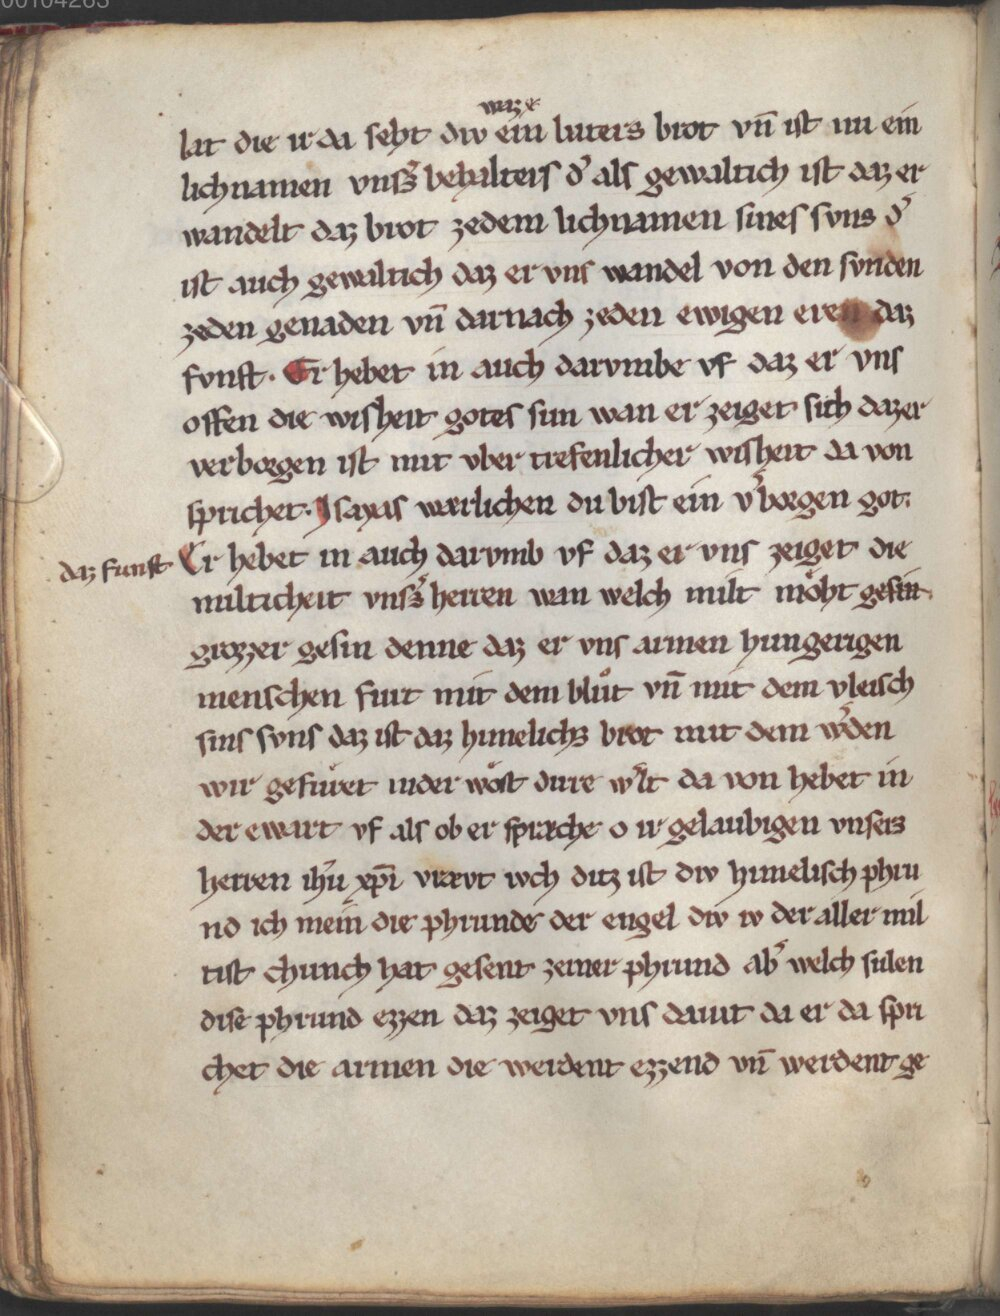 00104265
waz e
lat die ir da seht div ein luters brot vñ ist nu ein
lichnamen vnsẜ behalters dˀ als gewaltich ist daz er
wandelt daz brot zedem lichnamen sines svns dˀ
ist auch gewaltich daz er vns wandel von den svnden
zeden genaden vñ darnach zeden ewigen eren daz
fvnft. Er hebet in auch darvmbe vf daz er vns
offen die wisheit gotes sun wan er zeiget sich daz er
verborgen ist mit vber trefenlicher wisheit da von
sprichet. Jsayas wærlichen du bist ein vˀborgen got.
daz funft Er hebet in auch darvmb vf daz er vns zeiget die
milticheit vnsẜ herren wan welch milt möht gesin
grozzer gesin denne daz er vns armen hungerigen
menschen furt mit dem blůt vñ mit dem vleisch
sins svns daz ist daz himelichz brot mit dem wˀden
wir gefüret inder wöst dirre wˀlt da von hebet in
der ewart vf als ob er spræche o ir gelaubigen vnsers
herren ihˀu xp̄i vræut ivch ditz ist div himelisch phru
nd ich mein die phrunde der engel div iv der aller mil
tist chunch hat gesent zeiner phrund abˀ welch sulen
dise phrund ezzen daz zeiget vns dauit da er da spri
chet die armen die werdent ezzend vñ werdent ge